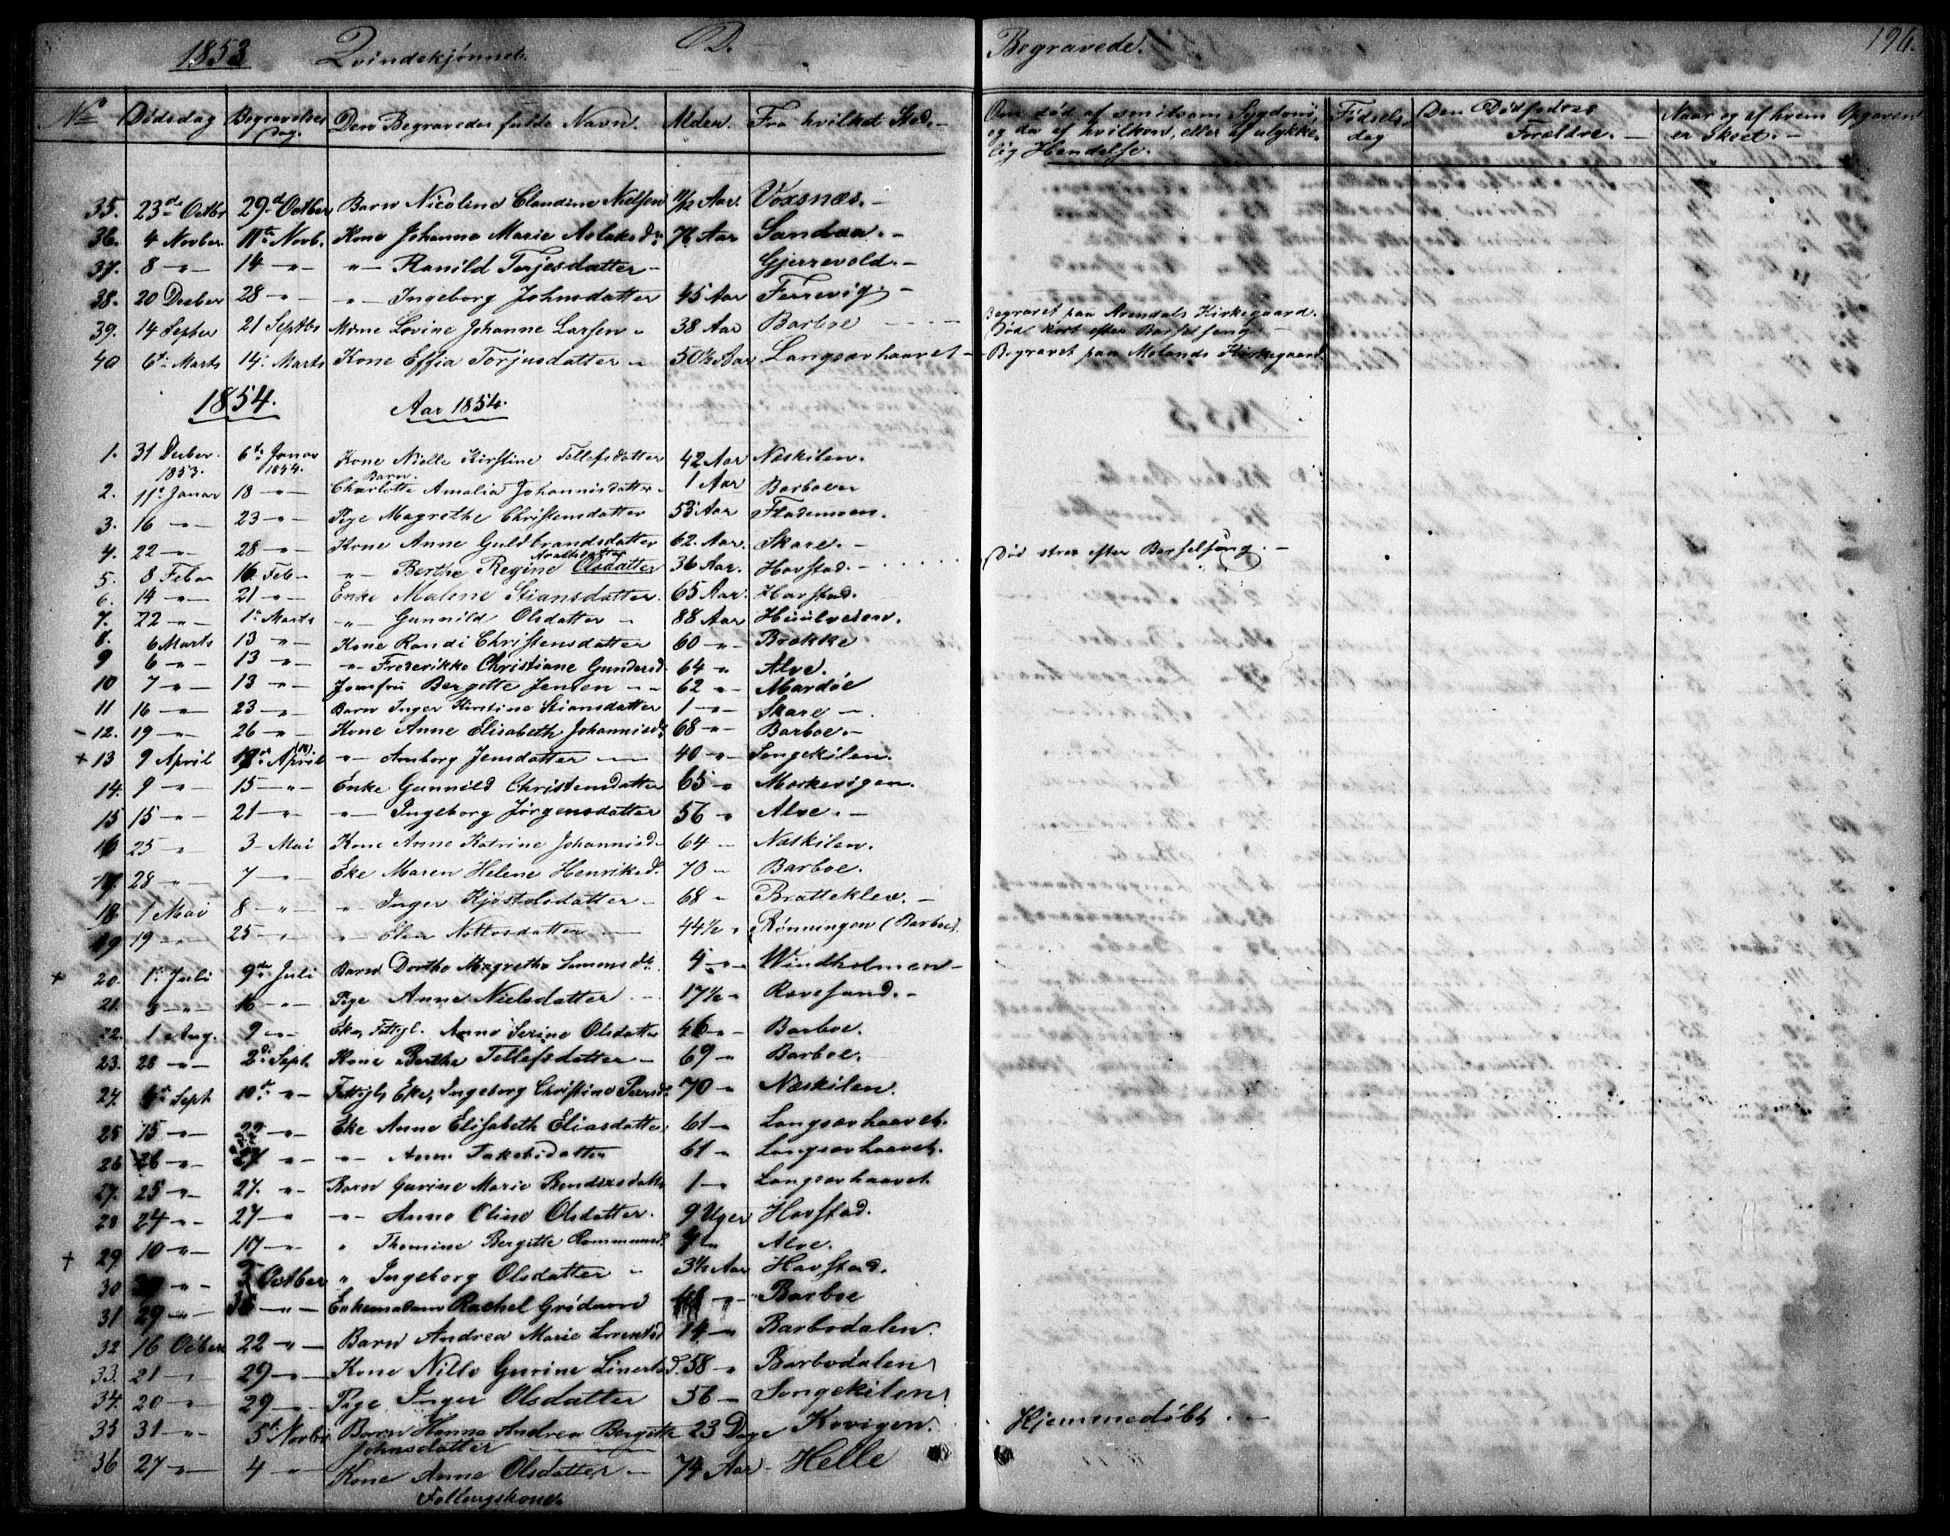 1853 Qvindekjønnet. D. Begravede. 196.
No Dødsdag Begravelses Dag. Den Begravedes fulde Navn. Alder. Fra hvilket Sted. Om død af smitsom Sygdom, og da af hvilken, eller af ulykke- lig Hendelse. Fødsels dag Den Dødfødtes Forældre. Naar og af hvem Opgaven er skeet.
35. 23d Octbr 29d Octber Barn Nicoline Claudine Nielsen 11/12 Aar. Voxnæs.
36. 4 Novber 11te Novb. Kone Johanne Marie Aslaksd. 76 Aar Sandaa.
37. 8 " 14 " " Ranild Terjesdatter Gjerrevold.
38. 20 Decber 28 " " Ingeborg Johnsdatter 45 Aar Ferrevig
39. 14 Septer 21 Septbr Mme Lovine Johanne Larsen 38 Aar Barboe Begravet paa Arendals Kirkegaard. Død kort efter Barselseng.
40 6te Marts 14. Marts Kone Effia Torjusdatter 50½ Aar Langsævhaavet Begravet paa Molands Kirkegaard.
1854. Aar 1854.
1. 31 Decber 1853. 6te Januar 1854. Kone Nielle Kirstine Tellefsdatter 42 Aar Næskilen.
2. 11te Januar 18 " Barn Charlotte Amalia Johannisdatter 1 Aar Barboe
3. 16 " 23 " Pige Magrethe Christensdatter 53 Aar Flademoen.
4. 22 " 28 " Kone Anne Guldbrandsdatter 62. Aar. Skare.
5. 8 Febr 16 Feb " Berthe Regine Olsdatter 36 Aar. Havstad. Død strax efter Barselseng.
6. 14 " 21 " Enke Malene Stiansdatter. 65 Aar. Havstad.
7. 22 " 1te Marts " Gunnild Olsdatter 88 Aar
8. 6 Marts 13 " Kone Randi Christensdatter 60 " Brække
9 6 " 13 " " Frederikke Christiane Gundersd 64 " Alve.
10 7 " 13 " Jomfru Bergitte Jensen 62 " Mardøe
11 16 " 23 " Barn Inger Kirstine Stiansdatter 1 " Skare
12. 19 " 26 " Kone Anne Elisabeth Johannisd. 68 " Barboe.
+ 13 9 April April " Anborg Jensdatter 40 " Songekilen.
14. 9 " 15 " Enke Gunnild Christensdatter 65 " Morkevigen.
15 15 " 21 " " Ingeborg Jørgensdatter 56 " Alve.
16 25 " 3 Mai Kone Anne Katrine Johannisd. 64 " Næskilen.
17 28 " 7 " Eke Maren Helene Henriksd. 70 " Barboe.
18. 1 Mai 8 " " Inger Kjøstolsdatter 68 " Bratteklev.
19 19 " 25 " " Elen Nottosdatter 44½ " Rønningen (Barboe).
+ 20. 1te Juli 9de Juli Barn Dorthe Magrethe Simonsd. 4 " Windholmen
21. 9 " 16 " Pige Anne Nielsdatter 17½ " Ravesand.
22. 1 Aug. 9 " Eke, Fattigl. Anne Serine Olsdatter 46 " Barboe.
23. 28 " 2d. Sept. Kone Berthe Tellefsdatter 69 " Barboe.
24. Sept 10de " Fattigl. Eke, Ingeborg Christine Peersd. 70 " Næskilen.
25 15 " 22 " Eke Anne Elisabeth Eliasdatter 61 " Langsævhaavet.
26 26 " " " Anne Jakobsdatter 61 " Langsævhaavet.
27. 25 " 27. " Barn Gurine Marie Bendixsdatter 1 " Langsævhaavet.
28 24 " 27 " " Anne Oline Olsdatter. 9 Uger Havstad.
+ 29 10 " 17 " " Thomine Bergitte Alve.
30 " 5 Octber " Ingeborg Olsdatter 3½ Aar Havstad.
31 29 " " Enkemadame Rachel Barboe
32 16 Octber 22 " Barn Andrea Marie Lorentsd. 14 " Barbodalen.
33. 21 " 29 " Kone Nille Gurine 58 " Barbodalen
34. 20 " 29 " Pige Inger Olsdatter 56 " Songekilen
35 31 " 5te Novbr Barn Hanna Andrea Bergitte Johnsdatter 23 Dage Kovigen. Hjemmedøbt.
36 27 " 4 " Kone Anne Olsdatter 74 Aar Helle